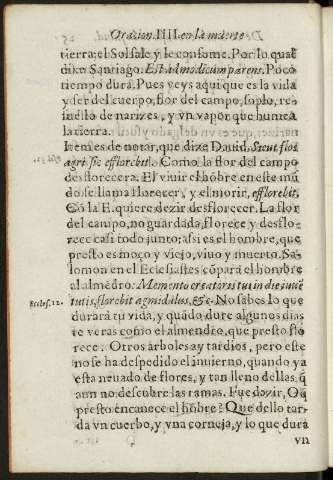 Oracion. IIII. en la muerte
tierra: el Sol sale y le consume. Por lo qual
dixo Santiago. Est ad modicum parens. Poco
tiempo dura. Pues veys aqui que es la vida
y ser del cuerpo, flor del campo, soplo, res
inello de narizes, y vn vapor que humea
la tierra.
hemes de notar, que dize Dauid. Sicut flos
agri sic efflorebit. Como la flor del campo
desflorecera. El viuir el hõbre en este mũ
do se llama florecer, y el morir, efflorebit,
Cõ la E. quiere dezir desflorecer. La flor
del campo, no guardada, florece y desflo-
rece casi todo junto: asi es el hombre, que
presto es moço y viejo, viuo y muerto. Sa-
lomon en el Eclesiastes cõpara el hombre
al almẽdro: Memento creatoris tui in die iuuẽ
Eccles. 12.
tutis, florebit agmidalus, &c. No sabes lo que
durará tu vida, y quãdo dure algunos dias
te veras como el almendro, que presto flo
rece: Otros arboles ay tardios, pero este
no se ha despedido el inuierno, quando ya
esta neuado de flores, y tan lleno dellas, q̃
aun no descubre las ramas. Fue dezir, O q̃
presto encanece el hõbre! Que dello tar-
da vn cuerbo, y vna corneja, y lo que dura
vn